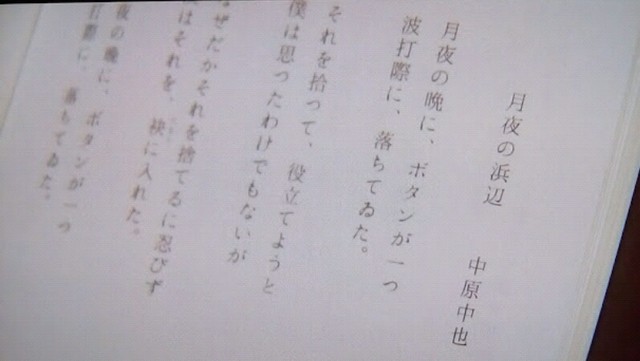 月夜の浜辺
中原中也
月夜の晩に、ボタンが一つ
波打際に、落ちてゐた。
それを拾つて、役立てようと
僕は思つたわけでもないが
なぜだかそれを捨てるに忍びず
はそれを、袂に入れた。
夜の晩に、ボタンが一つ
打際に、落ちてゐた。